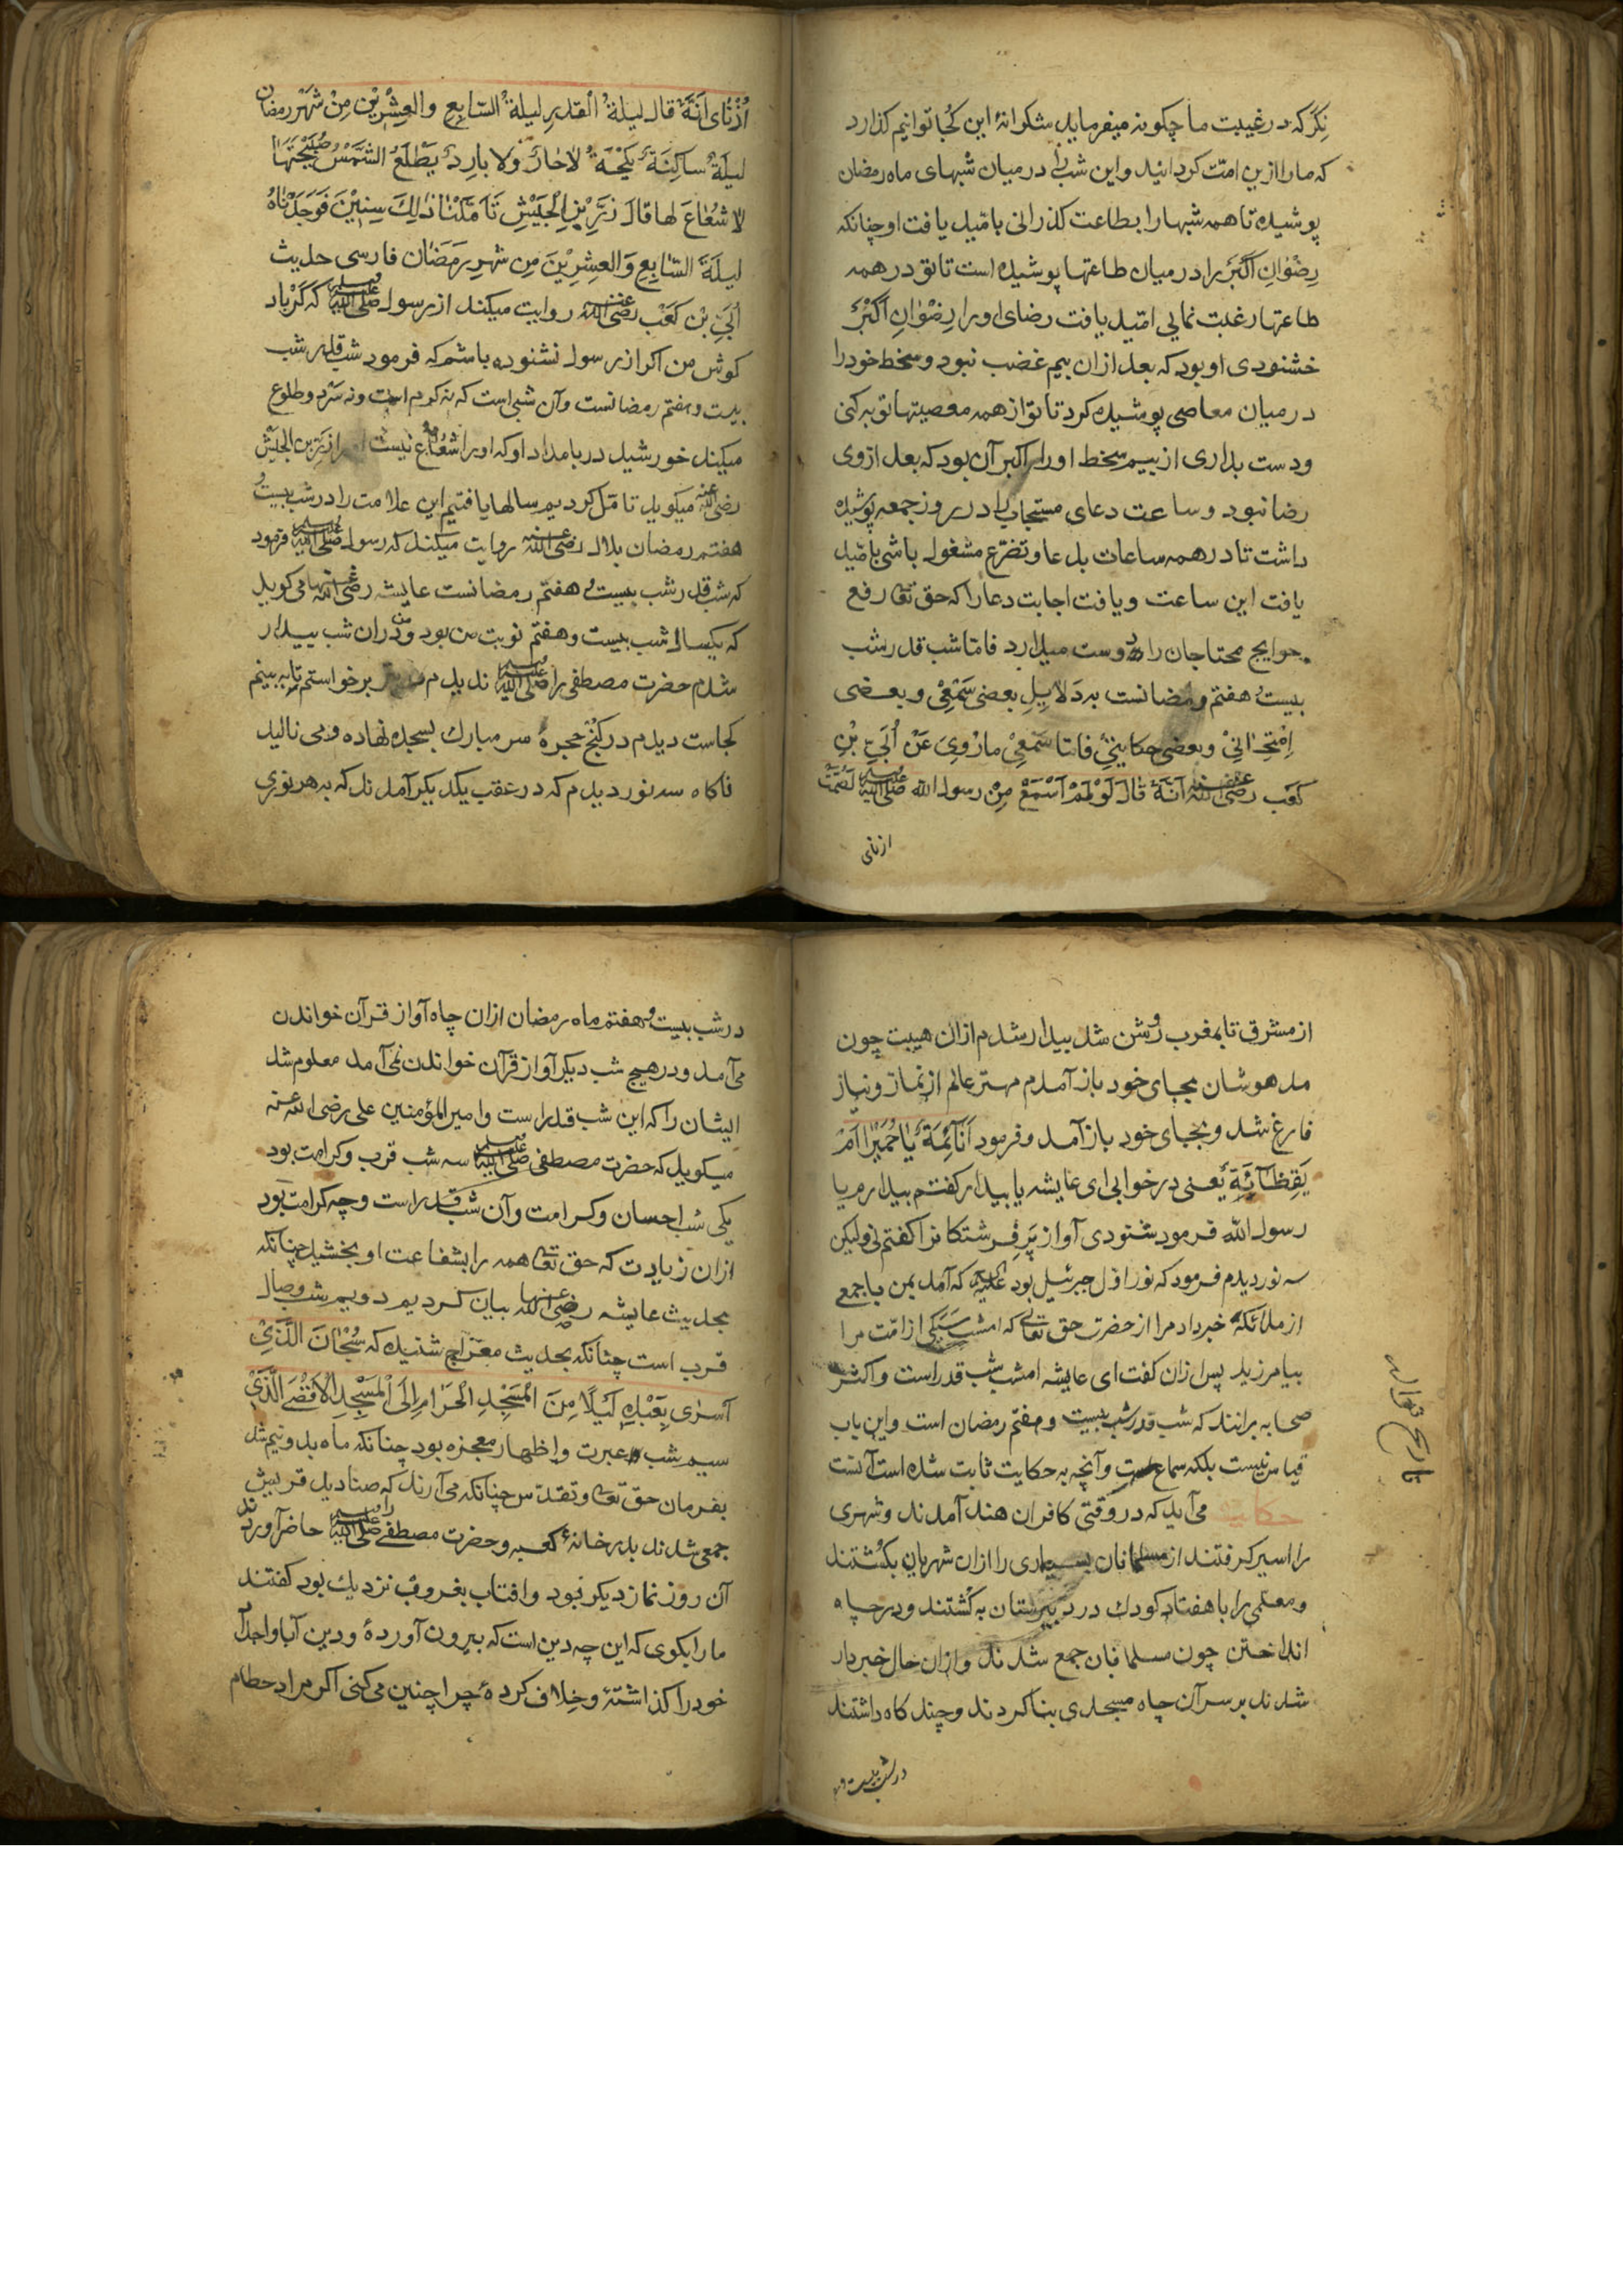 نگر که در غیبت ما چگونه میفرماید شکرانهٔ این کجا توانیم گذارد
که ما را ازین امت کردانید و این شب را در میان شبهای ماه رمضان
پوشیده تا همه شبها را بطاعت گذرانی بامّید یافت او چنانکه
رِضْوَانِ اَکْبَر را در میان طاعتها پوشیده است تا تو در همه
طاعتها رغبت نمایی امّید یافت رضای او را رِضْوَانِ اَکْبَرْ
خشنودی او بود که بعد از ان بیم غضب نبود و سخط خود را
در میان معاصی پوشیده کرد تا تو از همه معصیتها توبه کنی
و دست بداری از بیم سخط او را اکبر آن بود که بعد از وی
رضا نبود و ساعت دعای مستجاب را در روز جمعه پوشیده
داشت تا در همه ساعات بدعا و تضرّع مشغول باشی بامّید
یافت این ساعت و یافت اجابت دعا را که حق تعالی رفع
حوایج محتاجان را دوست میدارد فامّا شب قدر شب
بیست و هفتم رمضانست به دَلایِلِ بعضی سَمْعِیْ و بعضی
اِمْتِحَانِیْ و بعضی حکایتی فامّا سَمْعِیْ مارُوِیَ عَنْ اُبَیِّ بْنِ
کعب رضی الله عنه اَنَّهُ قَالَ لَوْ لَمْ اَسْمَعْ مِنْ رسول الله صلی الله علیه وسلم لَصُمَّتْ
ازنای
اُذْنَای اَنَّهُ قال لیلةُ القدرِ لیلةُ السّابعِ والعِشْرِیْنَ مِنْ شَهْرِ رمضان
لیلَةٌ ساکِنَةٌ لا حَارٌّ ولا بارِدٌ یَطْلَعُ الشَّمْسُ صَبِیْحَتَهَا
لا شُعَاعَ لها قالَ زِرِّ بْنِ الْجَیْشِ تَأَمَّلْنَا ذٰلِكَ سِنِیْنَ فَوَجَدْنَاهُ
لیلَةَ السَّابِعِ وَالعِشِرِیْنَ مِن شَهْرِ رَمَضَان فارسی حدیث
اُبَیِّ بْن کَعَبْ رضی الله عنه روایت میکند از رسول صلی الله علیه وسلم که کَرْباد
کوش من اکر از رسول نشنوده باشم که فرمود شب قدر شب
بیست و هفتم رمضانست و آن شبی است که نه کرم است و نه سَرْد و طلوع
میکند خورشید در بامداد او که او را شعاع نیست از زِرِّ بن الجَیْش
رضی الله عنه میکوید تا مّل کردیم سالها یافتیم این علامت را در شب بیست و
هفتم رمضان بلال رضی الله عنه روایت میکند که رسول صلی الله علیه وسلم فرمود
که شب قدر شب بیست و هفتم رمضانست عایشه رضی الله عنها می کوید
که یکسال شب بیست و هفتم نوبت من بود و من دران شب بیدار
شدم حضرت مصطفی را صلی الله علیه وسلم ندیدم برخواستم تا به بینم
کجاست دیدم در کنْج حجرهٔ سر مبارك بسجده نهاده و می نالید
ناکاه سه نور دیدم که در عقب یکدیکر آمدند که به هر نوری
از مشرق تا بمغرب روشن شد بیدار شدم از ان هیبت چون
مدهوشان بجای خود باز آمدم مهتر عالم از نماز و نیاز
فارغ شد و بجای خود باز آمد و فرمود اَنَآئِمَةٌ یَاحُمَیْرا اَمْ
یَقِظَانَةٌ یَعنی در خوابی ای عایشه یا بیدار کفتم بیدارم یا
رسول الله فرمود شنودی آواز پَرِ فِرشتکانرا کفتم نی ولیکن
سه نور دیدم فرمود که نور اوّل جبرئیل بود علیه السلام که آمد بمن با جمعی
از ملائکه خبر داد مرا از حضرت حق تعالی که امشب سَیَکی از امّت مرا
بیامرزید پس از ان کفت ای عایشه امشب شب قدر است و اکثر
صحابه برانند که شب قدر شب بیست و هفتم رمضان است و این باب
قیاس نیست بلکه سماع است و آنچه به حکایت ثابت شده است آنست
حکایت می آید که در وقتی کافران هند آمدند و شهری
را اسیر کرفتند از مسلمانان بسیاری را ازان شهریان بکُشتند
و معلمی را با هفتاد کودك در دبیرستان به کُشتند و در چاه
انداختن چون مسلمانان جمع شدند و ازان حال خبردار
شدند بر سر آن چاه مسجدی بنا کردند و چند کاه داشتند
در شب بیست و
در شب بیست و هفتم ماه رمضان ازان چاه آواز قرآن خواندن
می آمد و در هیچ شب دیکر آواز قرآن خواندن نمی آمد معلوم شد
ایشان را که این شب قدر است و امیر المؤمنین علی رضی الله عنه
میکوید که حضرت مصطفی صلی الله علیه وسلم سه شب قرب و کرامت بود
یکی شب احسان و کرامت و آن شب قدر است و چه کرامت بود
ازان زیادت که حق تعالی همه را بشفاعت او بخشید چنانکه
بحدیث عایشه رضی الله عنها بیان کردیم دویم شب وصال
قرب است چنانکه بحدیث معراج شنیده که سُبْحَانَ الَّذِیْ
اَسْرَی بِعَبْدِهِ لَیْلًا مِنَ الْمَسْجِدِ الْحَرَامِ اِلَی الْمَسْجِدِ الْاَقْصَی الَّذِیْ
سیم شب عبرت و اظهار معجزه بود چنانکه ماه بدو نیم شد
بفرمان حق تعالی و تقدّس چنانکه می آرند که صنادید قریش
جمعی شدند بدر خانهٔ کعبه و حضرت مصطفی را صلی الله علیه وسلم حاضر آوردند
آن روز نماز دیکر نبود و افتاب بغروب نزدیك بود کفتند
ما را بکوی که این چه دین است که بیرون آوردهٔ و دین آبا و اجداد
خود را کذاشتهٔ و خِلاف کردهٔ چرا چنین می کنی اکر مراد حطام